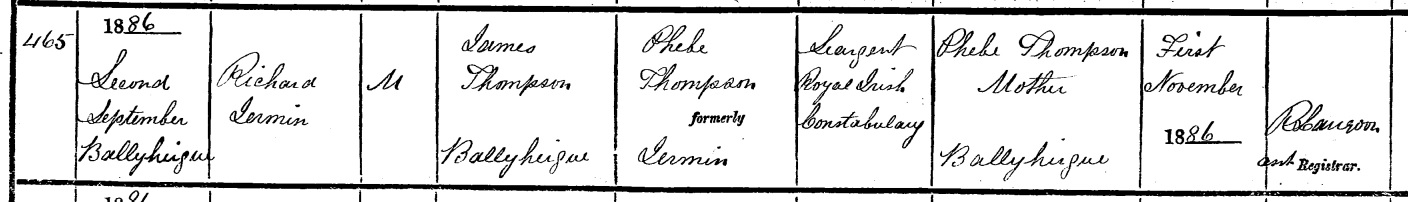 465
1886
Second
September
Ballyheigue
Richard
Jermin
M
James
Thompson
Ballyheigue
Phebe
Thompson
formerly
Jermin
Seargent
Royal Irish
Constabulary
Phebe Thompson
Mother
Ballyheigue
First
November
1886
Registrar.